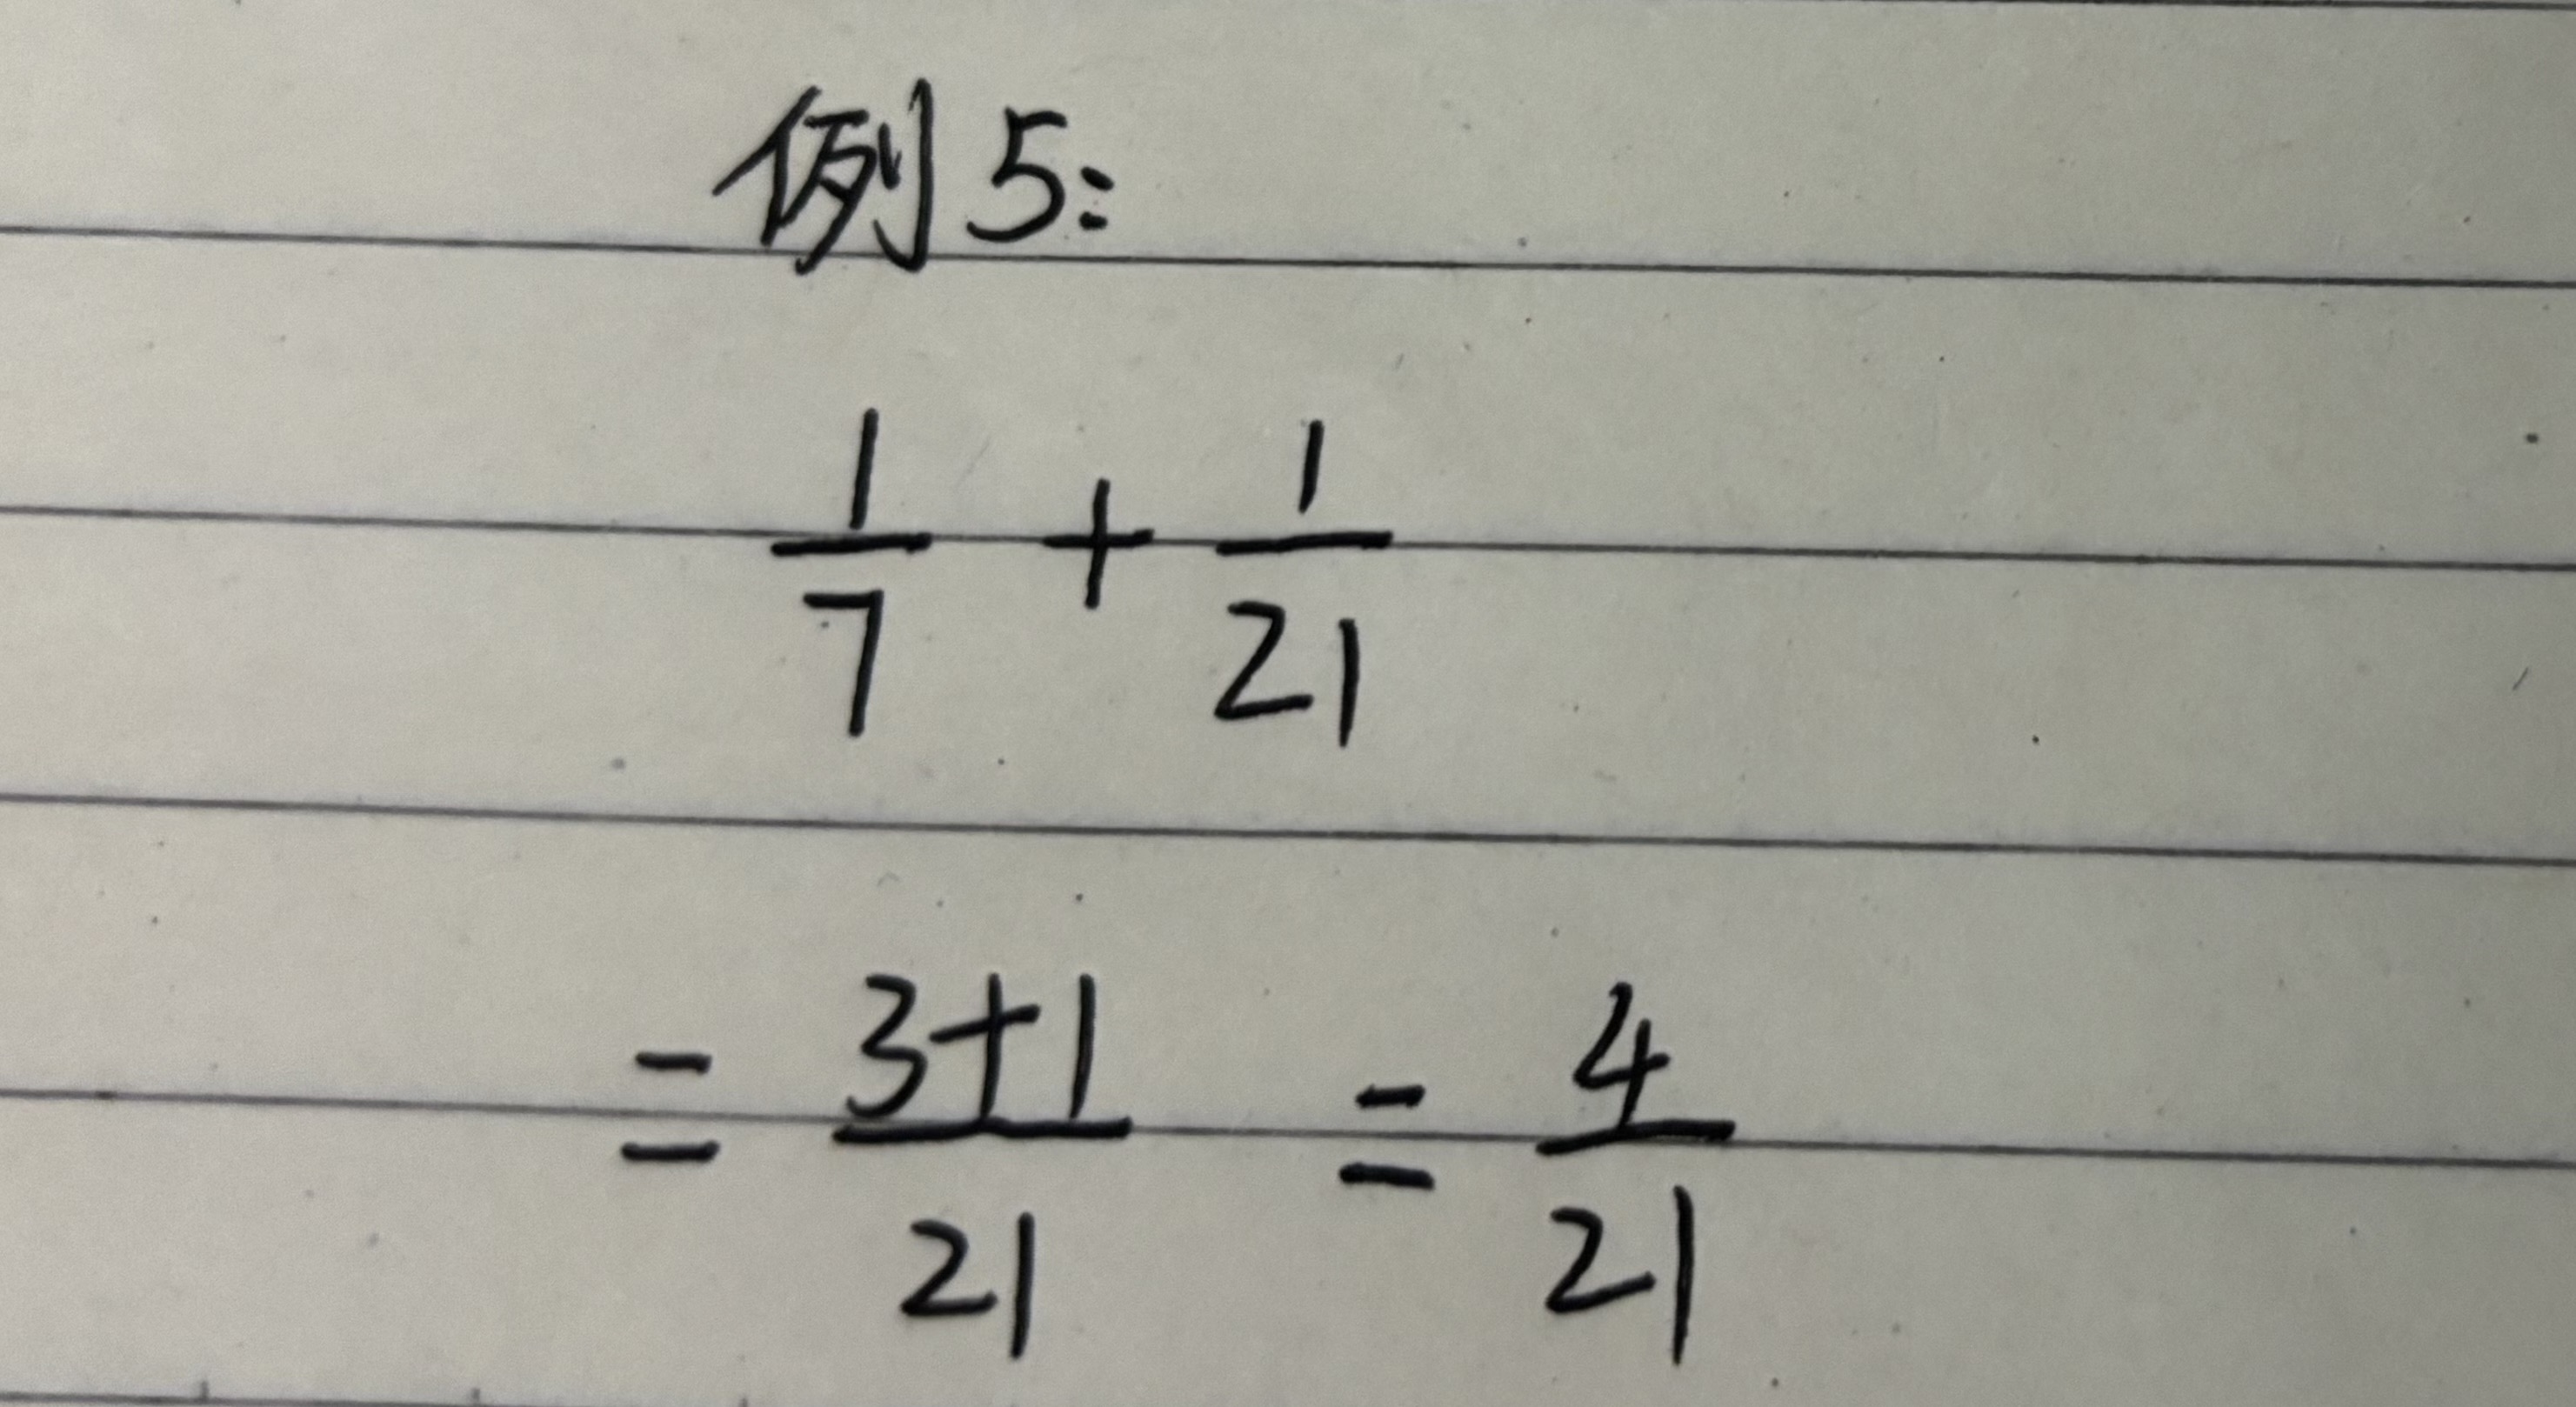 例5:
1/7 + 1/21
= 3+1/21 = 4/21